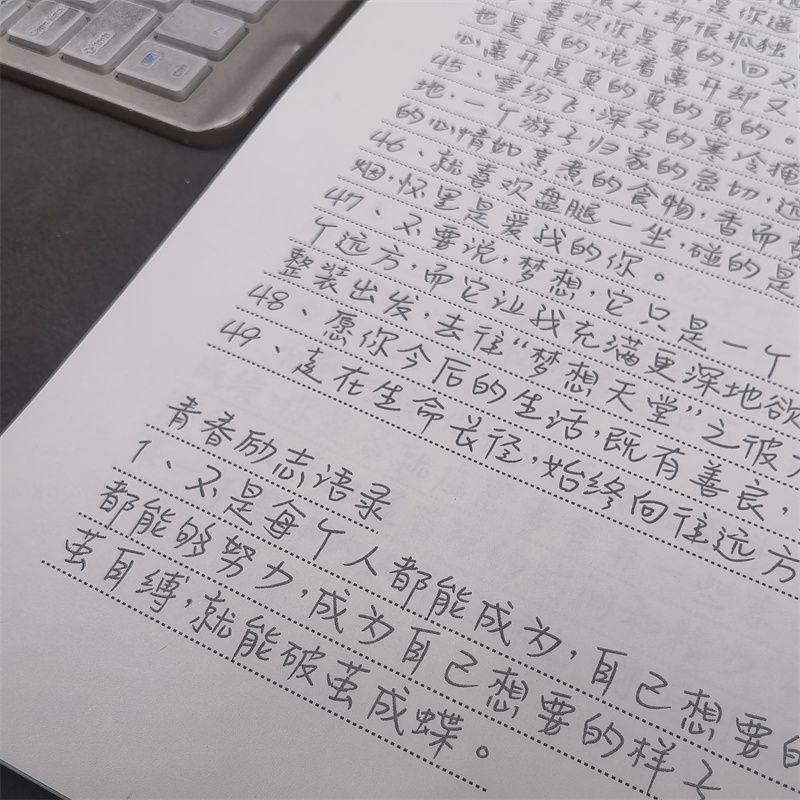 是你遥
很大，却很孤独
、喜欢你是真的，回又
也是真的，说着离开却又
心离开是真的真的真的。
45、雪纷飞，深冬的寒冷掩
地，一个游子归家的急切，远
的心情如烹煮的食物，香而
46、就喜欢盘腿一坐，碰的是
烟，怀里是爱我的你。
47、不要说，梦想，它只是一个
个远方，而它让我充满更深地欲
整装出发，去往“梦想天堂”之彼
48、愿你今后的生活，既有善良，
49、走在生命长径，始终向往远方
青春励志语录
1、不是每个人都能成为，自己想要的
都能够努力，成为自己想要的样子
茧自缚，就能破茧成蝶。